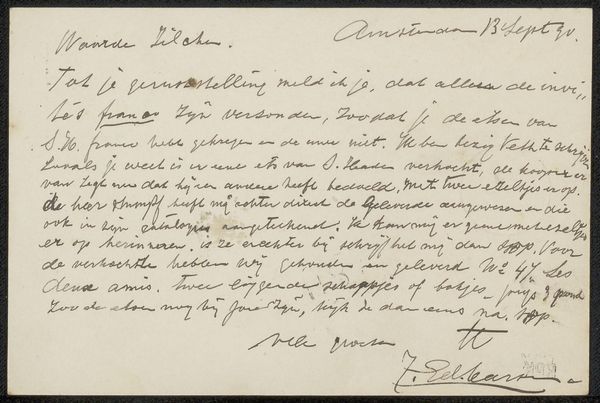 Amsterdam 13 Sept 90.
Waarde Zilcken.
Tot je geruststelling meld ik je, dat alleen de invi„
tés franco zijn verzonden, zoodat je de etsen van
S. H. franco hebt gekregen en de uwe niet. Ik ben bezig Veth te schrijven
Zooals je weet is er eene ets van S. Haden verkocht, de kooper er
van zegt me dat hij een andere heeft bedoeld, met twee ezeltjes er op.
de heer Stumpff heeft mij echter direct de geleverde aangewezen en die
ook in zijn catalogus aangeteekend. Ik kan mij er geene met ezeltjes
er op herinneren, is ze er echter bij schrijf het mij dan svp. Voor
de verkochte hebben wij gehouden en geleverd No 44 Les
deux amis. twee liggende schaapjes of bokjes, prijs 3 pond
Zoo de etsen nog bij je zijn, kijk ze dan eens na, svp.
Vele groeten
tt
J. Ed. Karsen